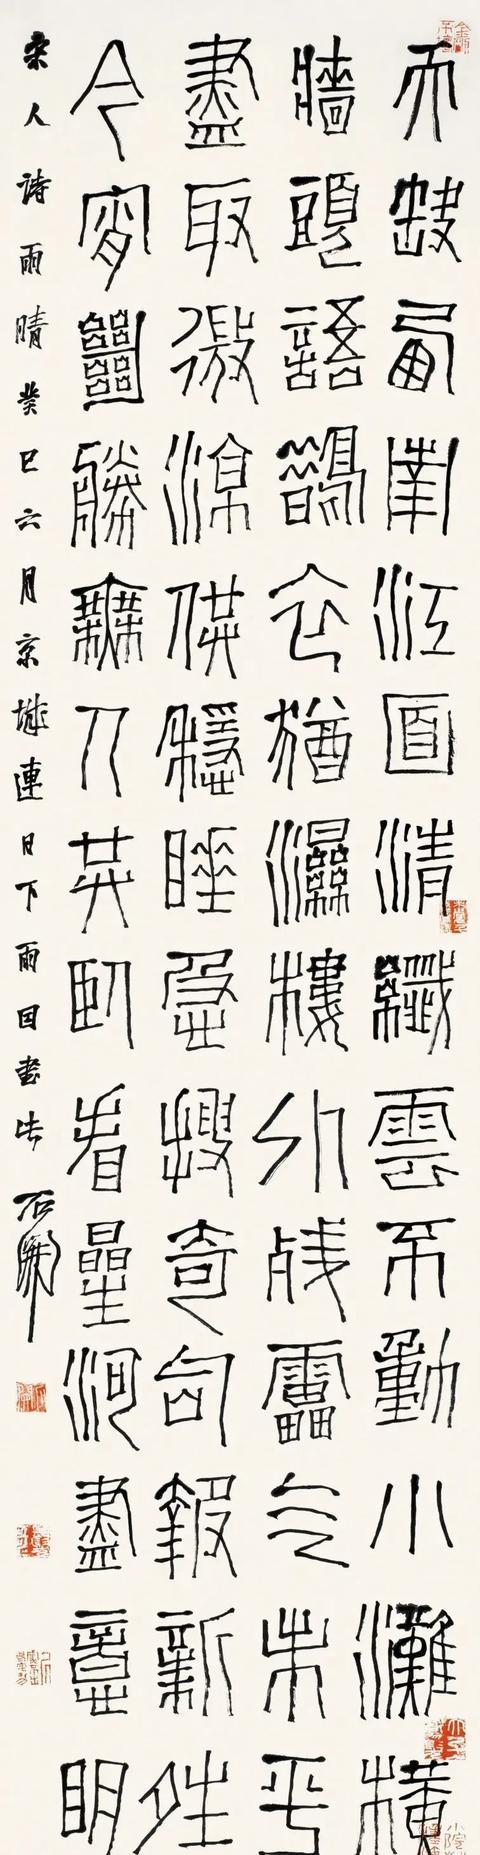 天缺西南江面清纖雲不動小灘橫
牆頭語鵲衣猶濕樓外殘雷气未平
盡取微涼供穩睡急搜奇句報新夝
今宵絕勝無人共臥看星河盡意明
宋人詩雨晴癸巳六月京城連日下雨因書此石開